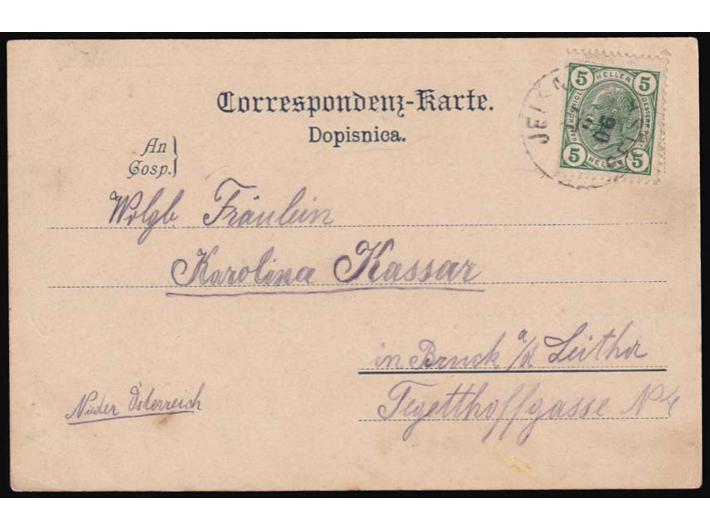 Correspondenz-Karte.
Dopisnica.
An
Gosp.
Wolgb. Fräulein
Karolina Kassar
in Bruck a/d Leitha
Tegetthoffgasse N 4
Nieder Österreich
5 HELLER 5
5 HELLER 5